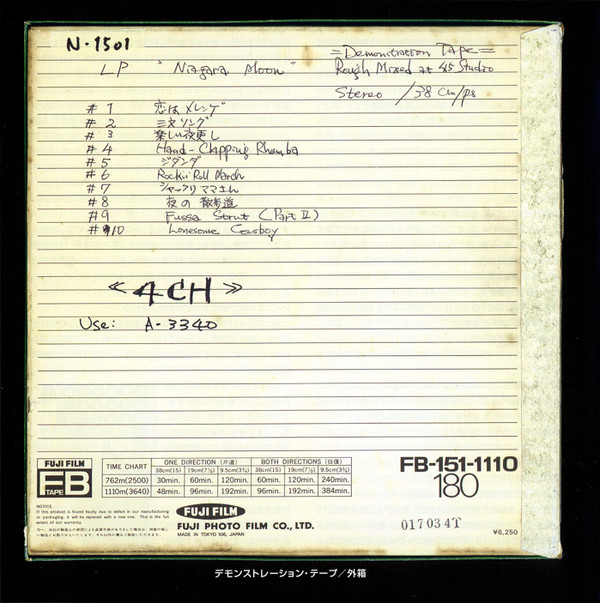 N-1501
LP "Niagara Moon"
=Demonstration Tape=
Rough Mixed at 45 Studio
Stereo / 38 cm/ps
#1 恋はメレンゲ
#2 三文ソング
#3 楽しい夜更し
#4 Hand-Clapping Rhumba
#5 ジダンダ
#6 Rock'n' Roll March
#7 シャックリママさん
#8 夜の散歩道
#9 Fussa Strut (Part II)
#10 Lonesome Cowboy
《4CH》
Use: A-3340
FUJI FILM
FB
TAPE
TIME CHART ONE DIRECTION (片道) BOTH DIRECTIONS (往復)
38cm(15) 19cm(7½) 9.5cm(3¾) 38cm(15) 19cm(7½) 9.5cm(3¾)
762m(2500) 30min. 60min. 120min. 60min. 120min. 240min.
1110m(3640) 48min. 96min. 192min. 96min. 192min. 384min.
FB-151-1110
180
NOTICE
If this product is found faulty due to defect in our manufacturing
or packaging, it will be replaced with a new one. This is the full
extent of our warranty.
FUJI FILM
FUJI PHOTO FILM CO., LTD.
MADE IN TOKYO 106, JAPAN
017034T
¥6,250
デモンストレーション・テープ／外箱